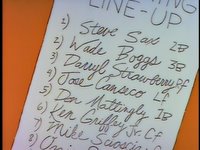 LINE-UP
1) Steve Sax 2B
2) Wade Boggs 3B
3) Darryl Strawberry Rf
4) Jose Canseco Lf
5) Don Mattingly 1B
6) Ken Griffey Jr. Cf
7) Mike Scioscia
8)